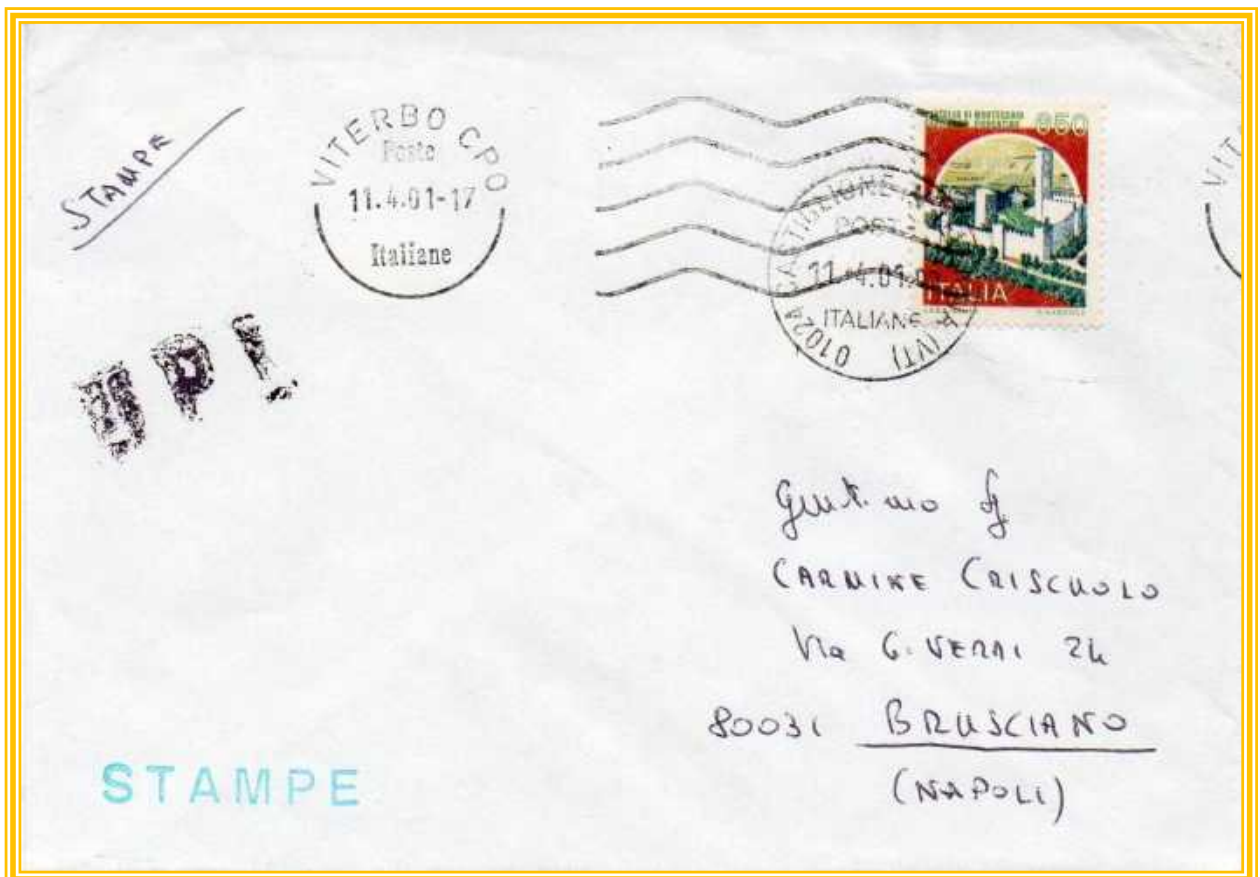 STAMPE
VITERBO CPO
Poste
11.4.01-17
Italiane
VIT
650
ITALIA
01024 CASTIGLIONE (VT)
POST
11.4.01
ITALIANE
UPI
CARMINE CRISCUOLO
Via G. VERDI 24
80031 BRUSCIANO
(NAPOLI)
STAMPE